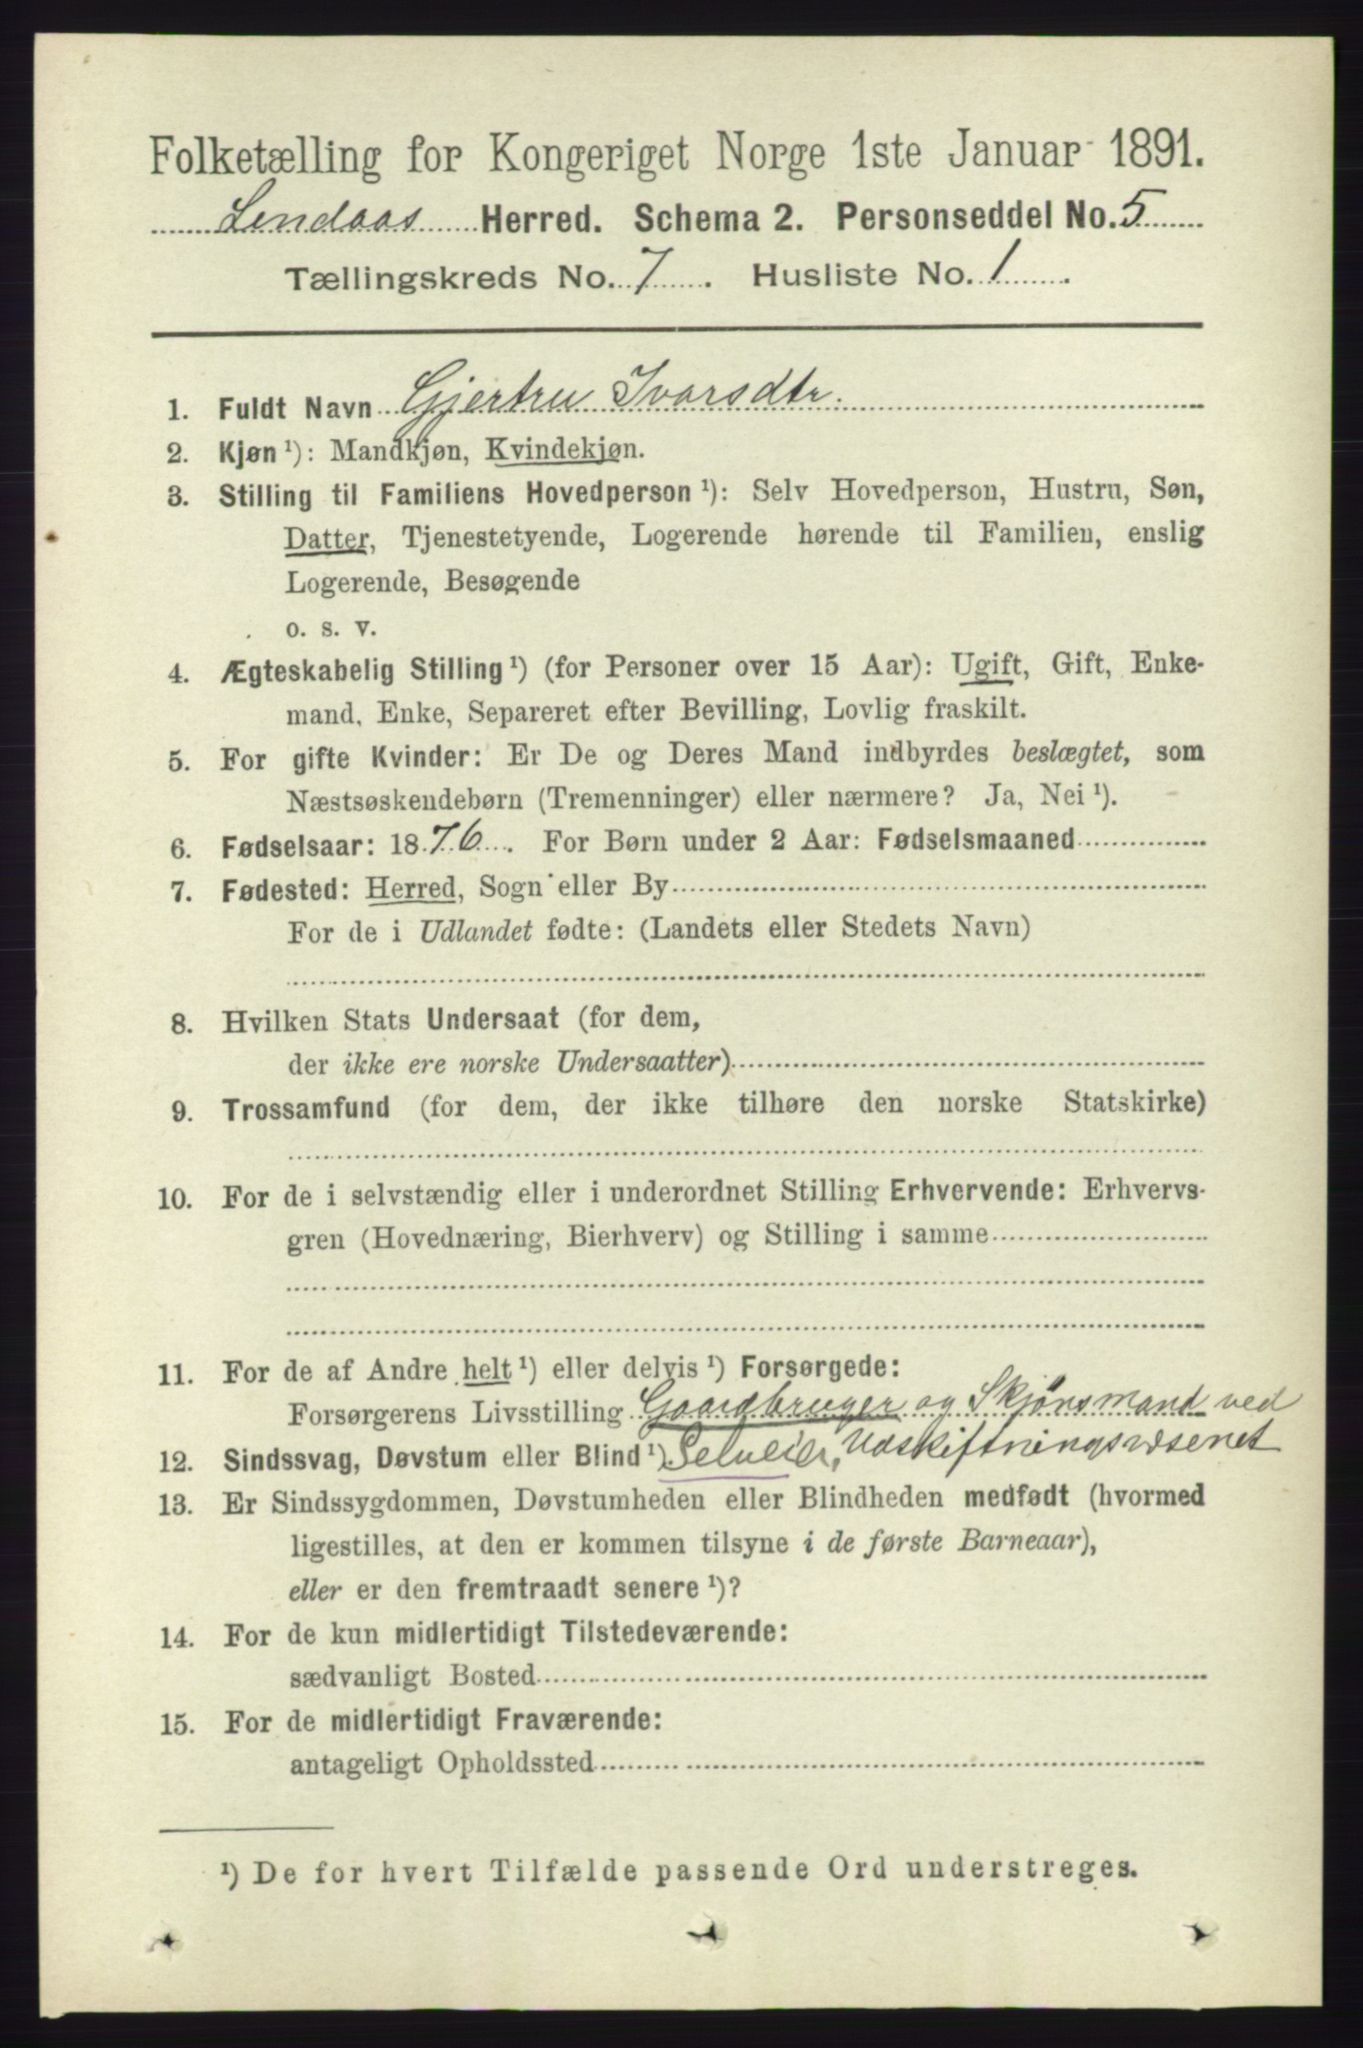 Folketælling for Kongeriget Norge 1ste Januar 1891.
Lindaas Herred. Schema 2. Personseddel No. 5
Tællingskreds No. 7. Husliste No. 1.
1. Fuldt Navn Gjertru Ivarsdtr.
2. Kjøn ¹): Mandkjøn, Kvindekjøn.
3. Stilling til Familiens Hovedperson ¹): Selv Hovedperson, Hustru, Søn,
Datter, Tjenestetyende, Logerende hørende til Familien, enslig
Logerende, Besøgende
o. s. v.
4. Ægteskabelig Stilling ¹) (for Personer over 15 Aar): Ugift, Gift, Enke-
mand, Enke, Separeret efter Bevilling, Lovlig fraskilt.
5. For gifte Kvinder: Er De og Deres Mand indbyrdes beslægtet, som
Næstsøskendebørn (Tremenninger) eller nærmere? Ja, Nei ¹).
6. Fødselsaar: 1876. For Børn under 2 Aar: Fødselsmaaned
7. Fødested: Herred, Sogn eller By
For de i Udlandet fødte: (Landets eller Stedets Navn)
8. Hvilken Stats Undersaat (for dem,
der ikke ere norske Undersaatter)
9. Trossamfund (for dem, der ikke tilhøre den norske Statskirke)
10. For de i selvstændig eller i underordnet Stilling Erhvervende: Erhvervs-
gren (Hovednæring, Bierhverv) og Stilling i samme
11. For de af Andre helt ¹) eller delvis ¹) Forsørgede:
Forsørgerens Livsstilling Gaardbruger og Skjönsmand ved
12. Sindssvag, Døvstum eller Blind ¹) Selveier, Udskiftningsvæsenet
13. Er Sindssygdommen, Døvstumheden eller Blindheden medfødt (hvormed
ligestilles, at den er kommen tilsyne i de første Barneaar),
eller er den fremtraadt senere ¹)?
14. For de kun midlertidigt Tilstedeværende:
sædvanligt Bosted
15. For de midlertidigt Fraværende:
antageligt Opholdssted
¹) De for hvert Tilfælde passende Ord understreges.